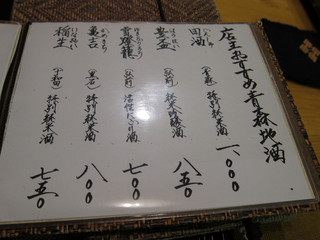 店主おすすめ青森地酒
田酒 (青森) 特別純米酒 一、〇〇〇
豊盃 (弘前) 純米吟醸酒 八五〇
(弘前) 七〇〇
亀吉 (黒石) 特別純米酒 八〇〇
稲生 (十和田) 特別純米酒 七五〇